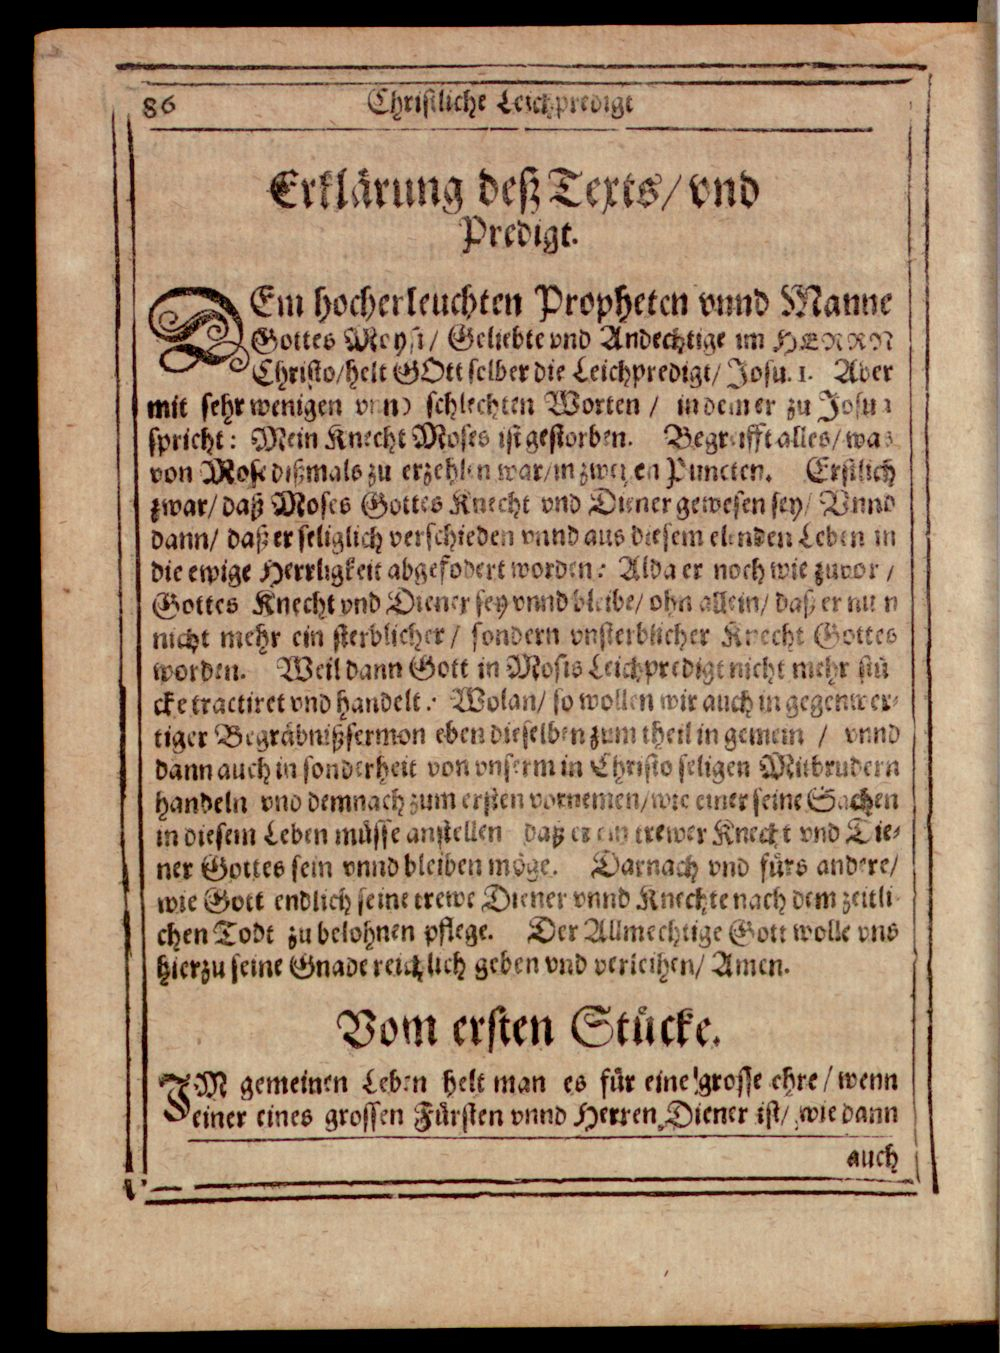 86 Christliche Leichpredigt
Erklärung deß Texts/ vnd
Predigt.
DEm hocherleuchten Propheten vnnd Manne
Gottes Moysi/ Geliebte vnd Andechtige im HERRN
Christo/ helt GOtt selber die Leichpredigt/ Josu. 1. Aber
mit sehr wenigen vnnd schlechten Worten / in dem er zu Josua
spricht: Mein Knecht Moses ist gestorben. Begreifft alles/ was
von Mose dißmals zu erzehlen war/ in zweyen Puncten. Erstlich
zwar/ daß Moses Gottes Knecht vnd Diener gewesen sey/ Vnnd
dann/ daß er seliglich verschieden vnnd aus diesem elenden Leben in
die ewige Herrligkeit abgefodert worden: Alda er noch wie zuvor /
Gottes Knecht vnd Diener sey vnnd bleibe/ ohn allein/ daß er nun
nicht mehr ein sterblicher / sondern vnsterblicher Knecht Gottes
worden. Weil dann Gott in Mosis Leichpredigt nicht mehr stü
cke tractiret vnd handelt: Wolan/ so wollen wir auch in gegenwer-
tiger Begräbnißsermon eben dieselben zum theil in gemein / vnnd
dann auch in sonderheit von vnserm in Christo seligen Mitbrudern
handeln vnd demnach zum ersten vornemen/ wie einer seine Sachen
in diesem Leben müsse anstellen daß er ein trewer Knecht vnd Die-
ner Gottes sein vnnd bleiben möge. Darnach vnd fürs andere/
wie Gott endlich seine trewe Diener vnnd Knechte nach dem zeitli
chen Todt zu belohnen pflege. Der Allmechtige Gott wolle vns
hierzu seine Gnade reichlich geben vnd verleihen/ Amen.
Vom ersten Stücke.
IM gemeinen Leben helt man es für eine grosse ehre/ wenn
einer eines grossen Fürsten vnnd Herren Diener ist/ wie dann
auch